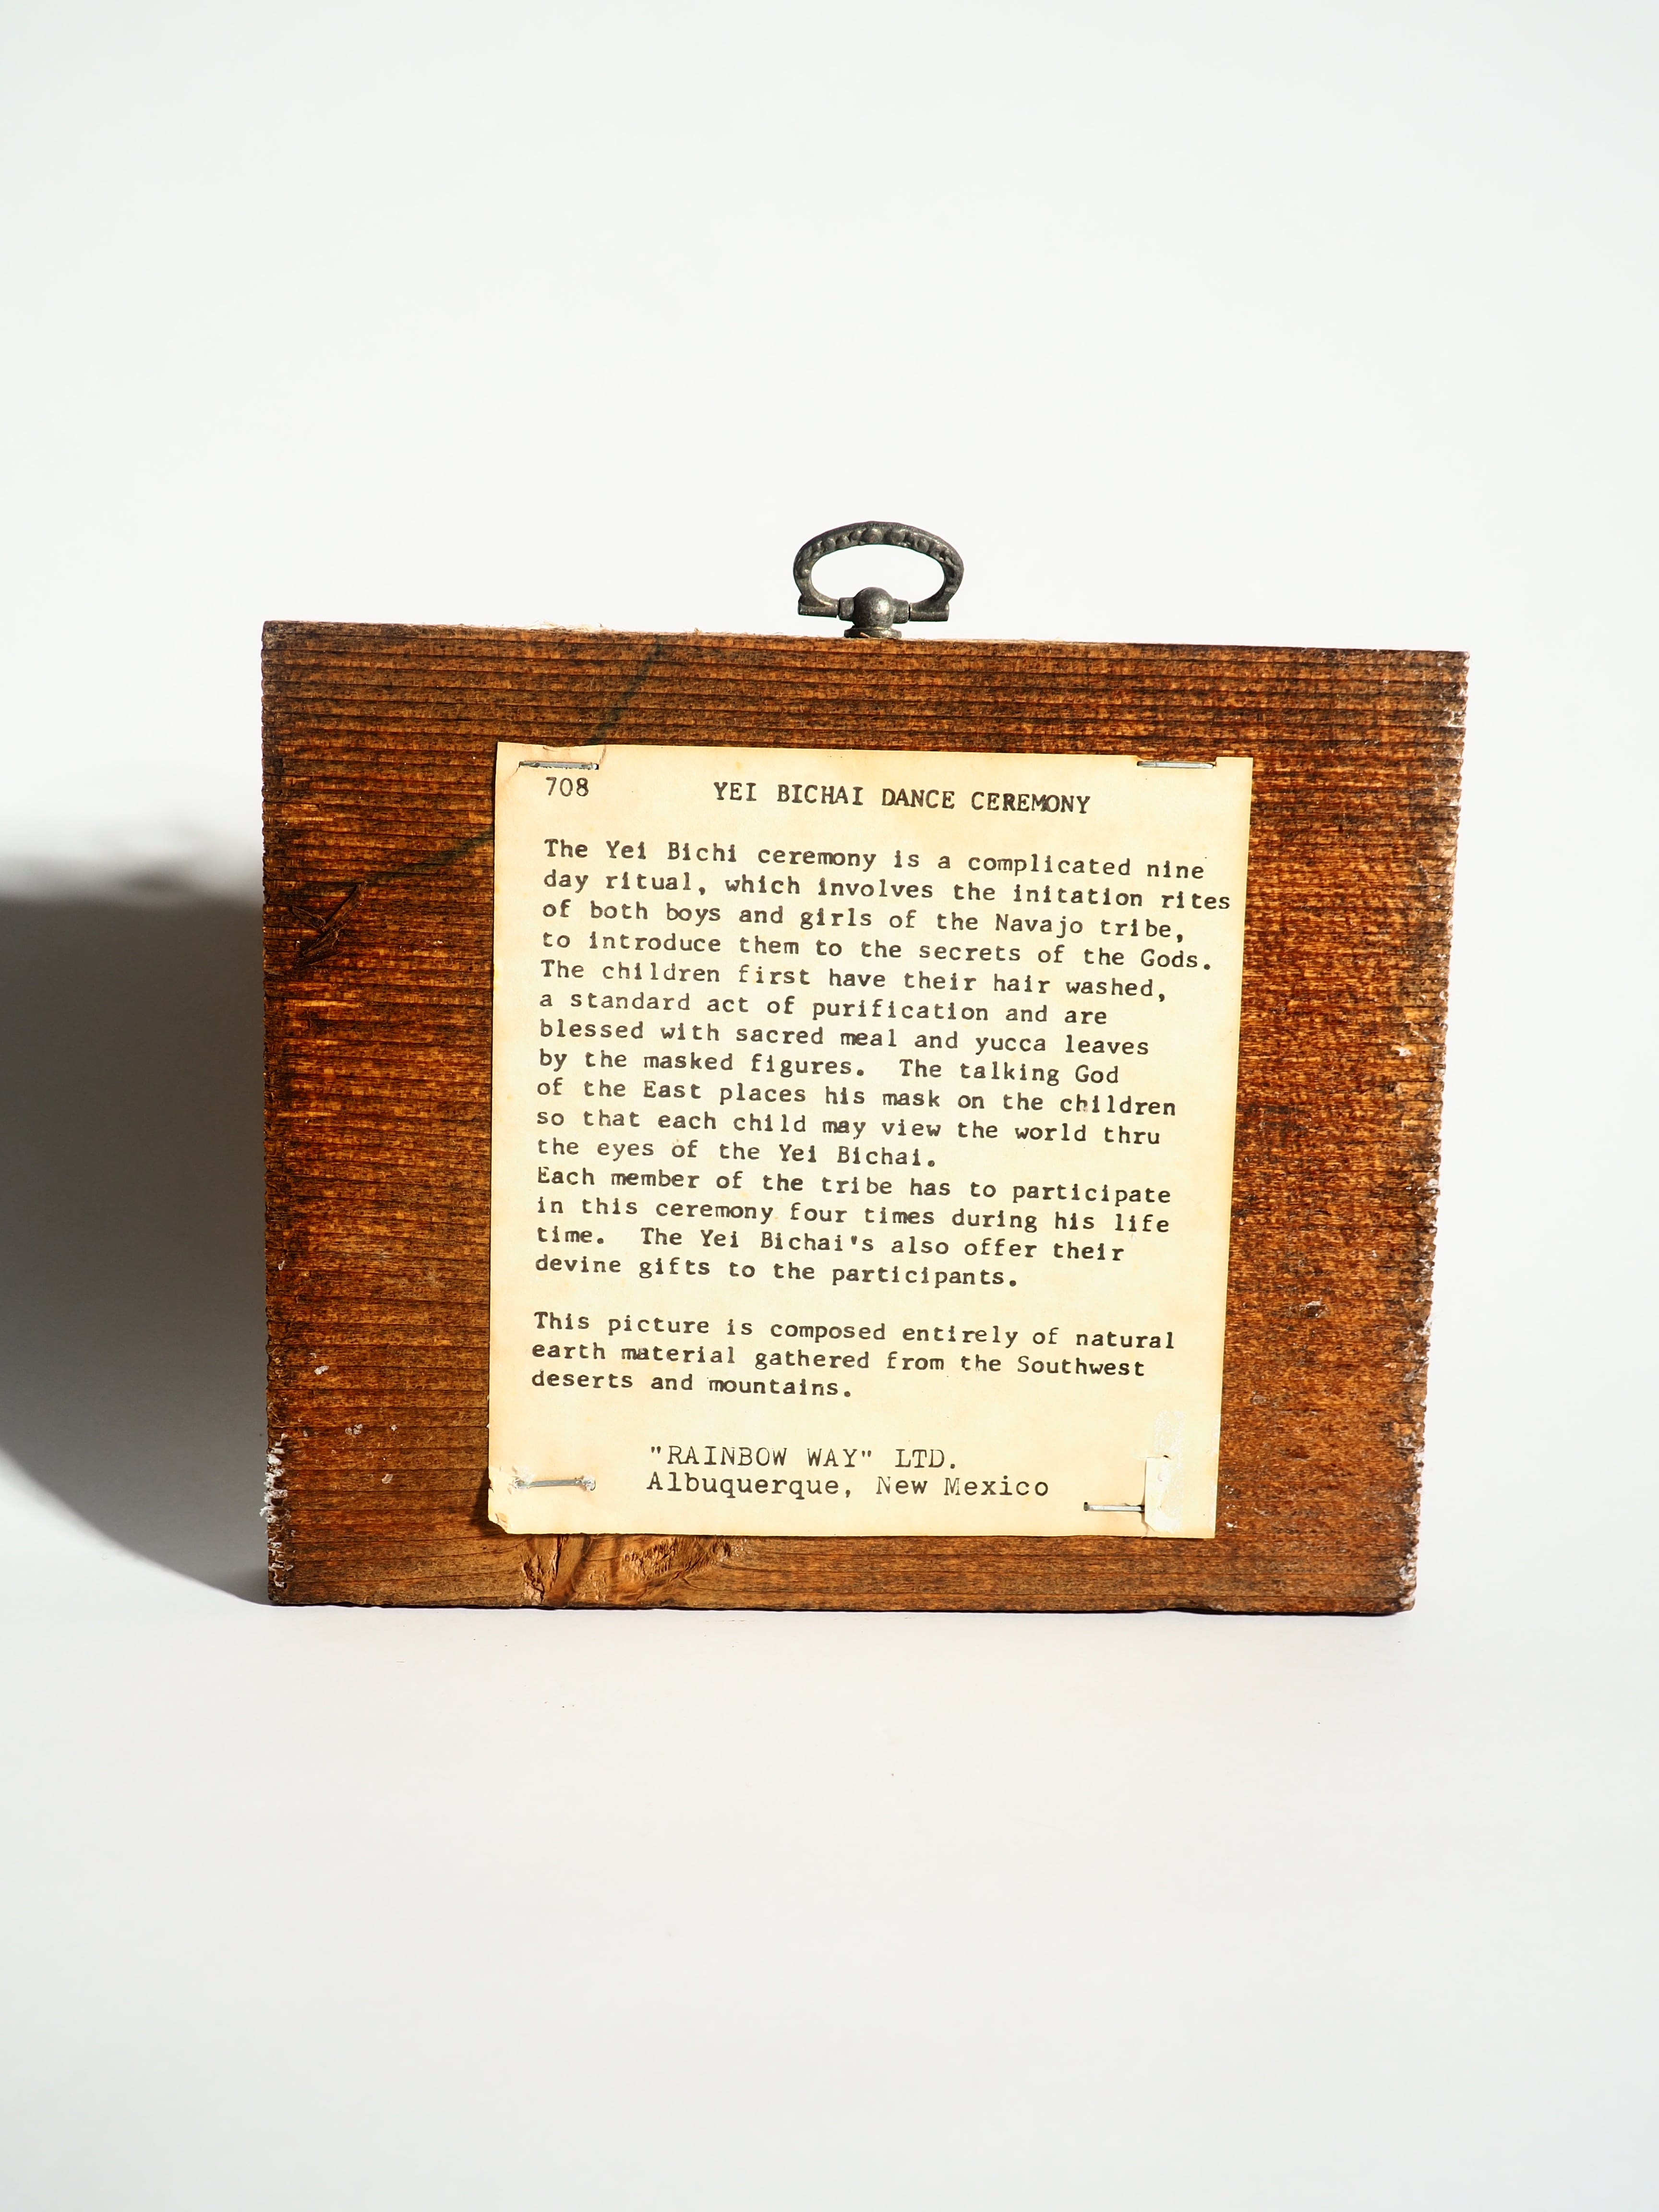 708 YEI BICHAI DANCE CEREMONY
The Yei Bichi ceremony is a complicated nine
day ritual, which involves the initation rites
of both boys and girls of the Navajo tribe,
to introduce them to the secrets of the Gods.
The children first have their hair washed,
a standard act of purification and are
blessed with sacred meal and yucca leaves
by the masked figures. The talking God
of the East places his mask on the children
so that each child may view the world thru
the eyes of the Yei Bichai.
Each member of the tribe has to participate
in this ceremony four times during his life
time. The Yei Bichai's also offer their
devine gifts to the participants.
This picture is composed entirely of natural
earth material gathered from the Southwest
deserts and mountains.
"RAINBOW WAY" LTD.
Albuquerque, New Mexico